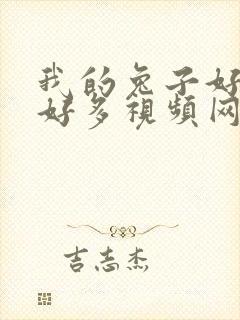 我的兔子好
好多視頻网
吉志杰